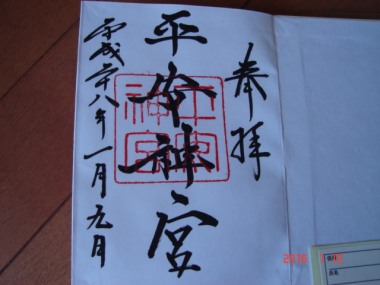 奉拝
平安神宮
平安神宮
平成二十八年一月九日